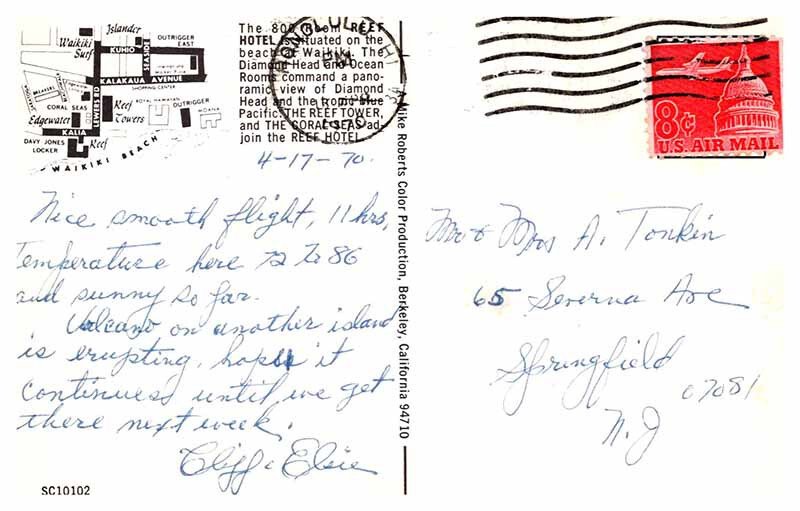 Islander
Waikiki
Surf
KUHIO
SEASIDE
OUTRIGGER
EAST
KALAKAUA AVENUE
SHOPPING CENTER
LEWERS RD
CORAL SEAS
Edgewater
KALIA
Reef
Towers
ROYAL HAWAIIAN
OUTRIGGER
MOANA
DAVY JONES
LOCKER
Reef
WAIKIKI BEACH
The 800 Room REEF
HOTEL is situated on the
beach at Waikiki. The
Diamond Head and Ocean
Rooms command a pano-
ramic view of Diamond
Head and the tropic blue
Pacific. THE REEF TOWER,
and THE CORAL SEAS ad-
join the REEF HOTEL.
HONOLULU, HI
PM
1970
4-17-70.
Nice smooth flight, 11 hrs,
Temperature here 72 to 86
and sunny so far.
Volcano on another island
is erupting, hope it
continues until we get
there next week.
Cliff & Elsie
SC10102
Mike Roberts Color Production, Berkeley, California 94710
8¢
U.S. AIR MAIL
Mr & Mrs A. Tonkin
65 Severna Ave
Springfield
07081
N.J